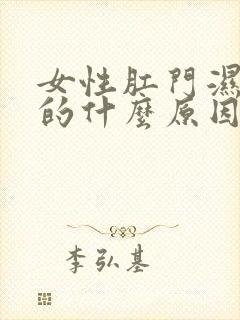 女性肛門濕
的什麼原因
李弘基